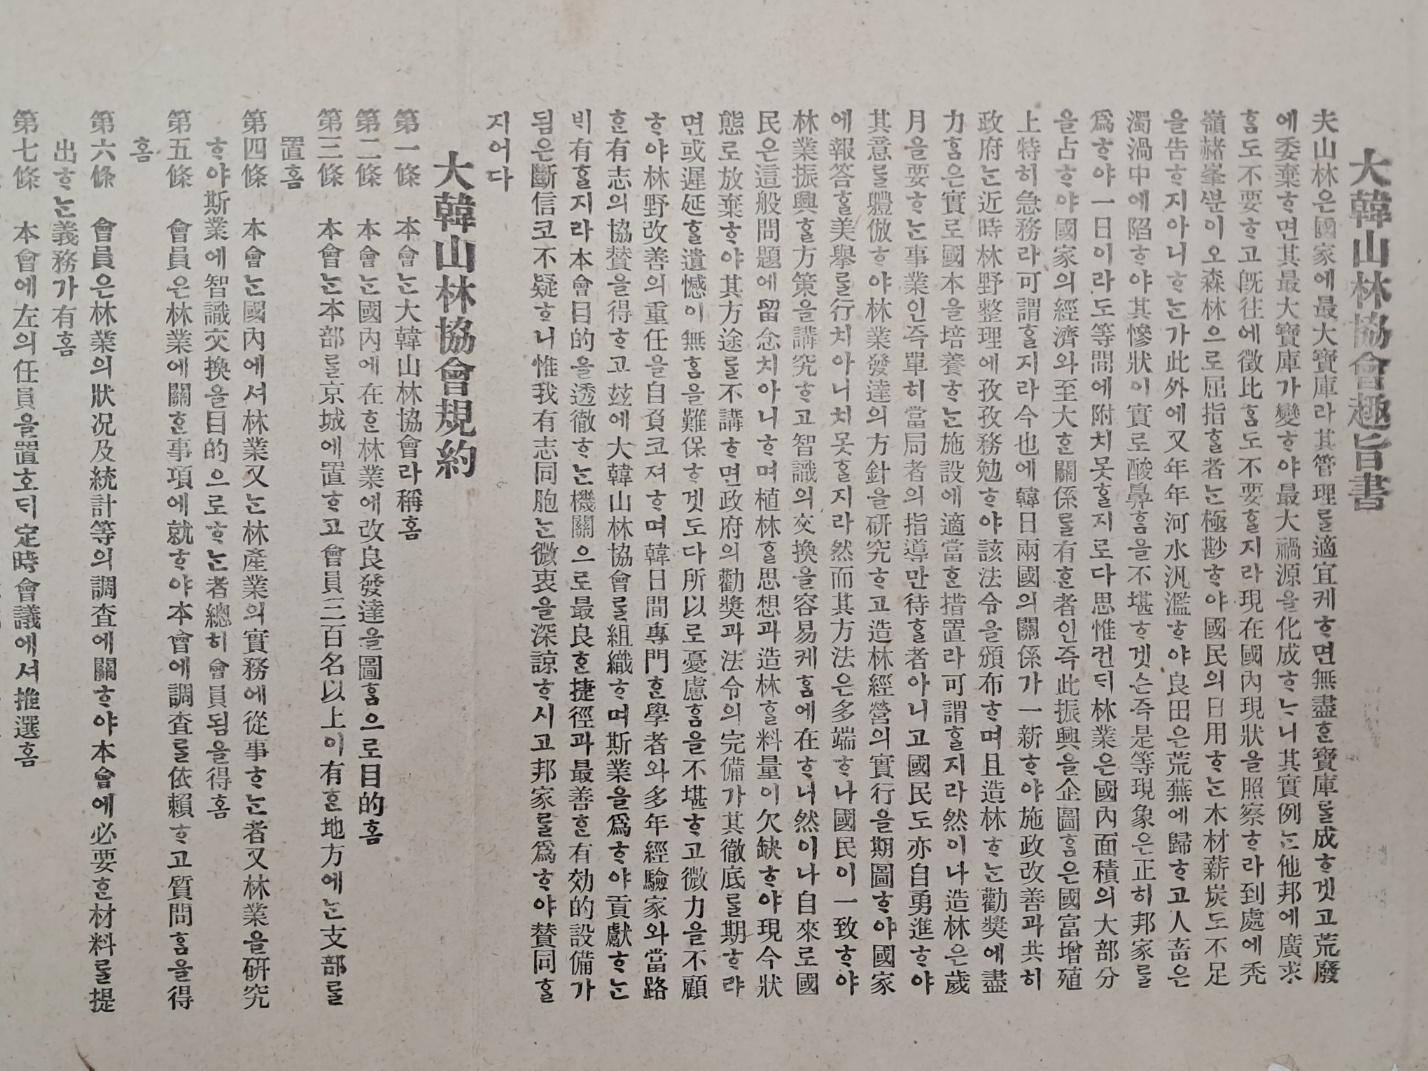 大韓山林協會趣旨書
夫山林은國家에最大寶庫라其管理를適宜케ᄒᆞ면無盡ᄒᆞᆫ寶庫를成ᄒᆞ겟고荒廢
에委棄ᄒᆞ면其最大寶庫가變ᄒᆞ야最大禍源을化成ᄒᆞᄂᆞ니其實例ᄂᆞᆫ他邦에廣求
ᄒᆞᆷ도不要ᄒᆞ고旣往에徵比ᄒᆞᆷ도不要ᄒᆞᆯ지라現在國內現狀을照察ᄒᆞ라到處에禿
嶺赭峯ᄲᅮᆫ이오森林으로屈指ᄒᆞᆯ者ᄂᆞᆫ極尠ᄒᆞ야國民의日用ᄒᆞᄂᆞᆫ木材薪炭도不足
을告ᄒᆞ지아니ᄒᆞᄂᆞᆫ가此外에又年年河水汎濫ᄒᆞ야良田은荒蕪에歸ᄒᆞ고人畜은
濁渦中에陷ᄒᆞ야其慘狀이實로酸鼻ᄒᆞᆷ을不堪ᄒᆞ겟슨즉是等現象은正히邦家를
爲ᄒᆞ야一日이라도等閒에附치못ᄒᆞᆯ지로다思惟컨ᄃᆡ林業은國內面積의大部分
을占ᄒᆞ야國家의經濟와至大ᄒᆞᆫ關係를有ᄒᆞᆫ者인즉此振興을企圖ᄒᆞᆷ은國富增殖
上特히急務라可謂ᄒᆞᆯ지라今也에韓日兩國의關係가一新ᄒᆞ야施政改善과共히
政府ᄂᆞᆫ近時林野整理에孜孜務勉ᄒᆞ야該法令을頒布ᄒᆞ며且造林ᄒᆞᄂᆞᆫ勸奬에盡
力ᄒᆞᆷ은實로國本을培養ᄒᆞᄂᆞᆫ施設에適當ᄒᆞᆫ措置라可謂ᄒᆞᆯ지라然이나造林은歲
月을要ᄒᆞᄂᆞᆫ事業인즉單히當局者의指導만待ᄒᆞᆯ者아니고國民도亦自勇進ᄒᆞ야
其意를軆倣ᄒᆞ야林業發達의方針을硏究ᄒᆞ고造林經營의實行을期圖ᄒᆞ야國家
에報答ᄒᆞᆯ美擧를行치아니치못ᄒᆞᆯ지라然而其方法은多端ᄒᆞ나國民이一致ᄒᆞ야
林業振興ᄒᆞᆯ方策을講究ᄒᆞ고智識의交換을容易케ᄒᆞᆷ에在ᄒᆞ니然이나自來로國
民은這般問題에留念치아니ᄒᆞ며植林ᄒᆞᆯ思想과造林ᄒᆞᆯ料量이欠缺ᄒᆞ야現今狀
態로放棄ᄒᆞ야其方途를不講ᄒᆞ면政府의勸奬과法令의完備가其徹底를期ᄒᆞ랴
면或遲延ᄒᆞᆯ遺憾이無ᄒᆞᆷ을難保ᄒᆞ겟도다所以로憂慮ᄒᆞᆷ을不堪ᄒᆞ고微力을不顧
ᄒᆞ야林野改善의重任을自負코져ᄒᆞ며韓日間專門ᄒᆞᆫ學者와多年經驗家와當路
ᄒᆞᆫ有志의協贊을得ᄒᆞ고玆에大韓山林協會를組織ᄒᆞ며斯業을爲ᄒᆞ야貢獻ᄒᆞᄂᆞᆫ
ᄇᆡ有ᄒᆞᆯ지라本會目的을透徹ᄒᆞᄂᆞᆫ機關으로最良ᄒᆞᆫ捷徑과最善ᄒᆞᆫ有効的設備가
됨은斷信코不疑ᄒᆞ니惟我有志同胞ᄂᆞᆫ微衷을深諒ᄒᆞ시고邦家를爲ᄒᆞ야贊同ᄒᆞᆯ
지어다
大韓山林協會規約
第一條 本會ᄂᆞᆫ大韓山林協會라稱ᄒᆞᆷ
第二條 本會ᄂᆞᆫ國內에在ᄒᆞᆫ林業에改良發達을圖ᄒᆞᆷ으로目的ᄒᆞᆷ
第三條 本會ᄂᆞᆫ本部를京城에置ᄒᆞ고會員三百名以上이有ᄒᆞᆫ地方에ᄂᆞᆫ支部를
置ᄒᆞᆷ
第四條 本會ᄂᆞᆫ國內에셔林業又ᄂᆞᆫ林產業의實務에從事ᄒᆞᄂᆞᆫ者又林業을硏究
ᄒᆞ야斯業에智識交換을目的으로ᄒᆞᄂᆞᆫ者總히會員됨을得ᄒᆞᆷ
第五條 會員은林業에關ᄒᆞᆫ事項에就ᄒᆞ야本會에調査를依賴ᄒᆞ고質問ᄒᆞᆷ을得
ᄒᆞᆷ
第六條 會員은林業의狀况及統計等의調査에關ᄒᆞ야本會에必要ᄒᆞᆫ材料를提
出ᄒᆞᄂᆞᆫ義務가有ᄒᆞᆷ
第七條 本會에左의任員을置호ᄃᆡ定時會議에셔推選ᄒᆞᆷ